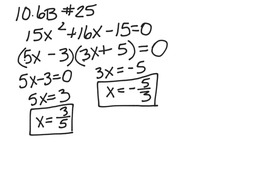 10.6B #25
15x² + 16x - 15 = 0
(5x - 3)(3x + 5) = 0
5x - 3 = 0
5x = 3
x = 3/5
3x = -5
x = -5/3